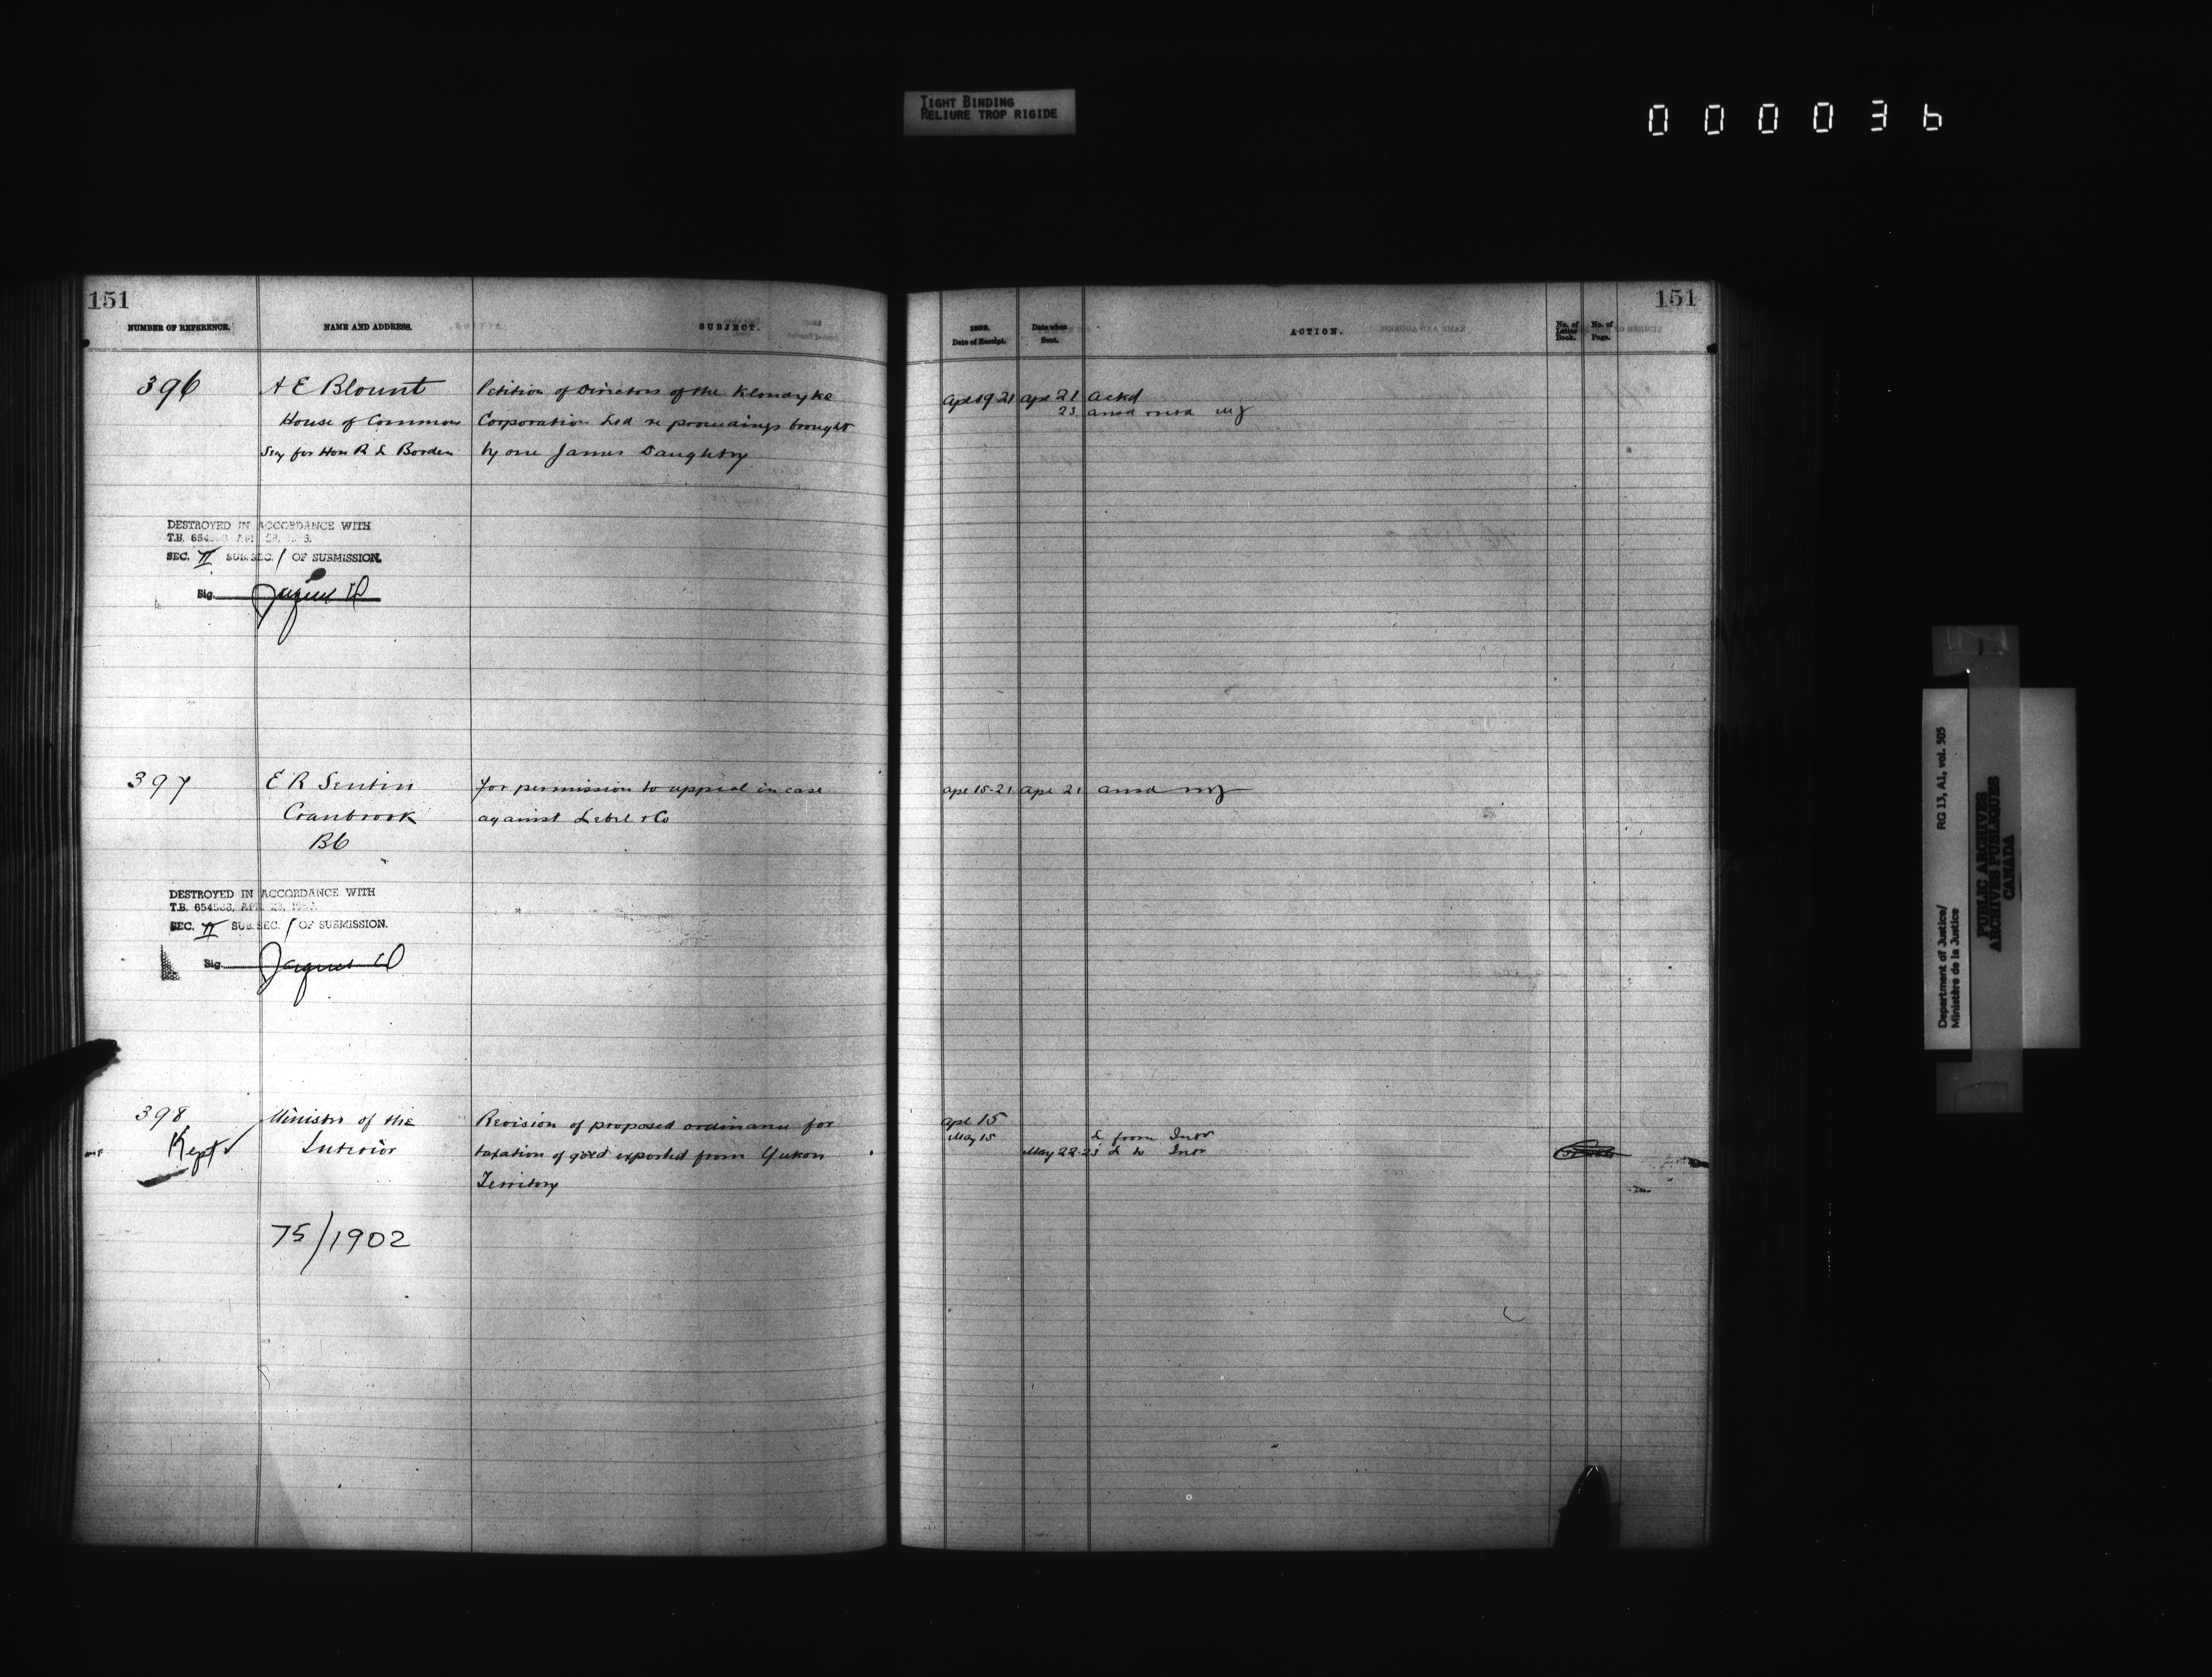 TIGHT BINDING
RELIURE TROP RIGIDE
000036
151
NUMBER OF REFERENCE.
NAME AND ADDRESS.
SUBJECT.
396
A E Blount
House of Commons
Secy for Hon R L Borden
Petition of Directors of the Klondyke
Corporation Ltd re proceedings brought
by one James Daughtry
DESTROYED IN ACCORDANCE WITH
T.B. 654
SEC. II SUB.SEC. / OF SUBMISSION.
Sig.
397
E R Sentin
Cranbrook
BC
for permission to appeal in case
against Lebel & Co
DESTROYED IN ACCORDANCE WITH
T.B. 654
SEC. II SUB.SEC. / OF SUBMISSION.
Sig.
398
Kept
Minister of the
Interior
Revision of proposed ordinance for
taxation of gold exported from Yukon
Territory
75/1902
151
Date of Receipt.
Date when
Sent.
ACTION.
No. of
Letter
Book.
No. of
Page.
Apl 19-21 Apl 21 Ackd
23
Apl 15-21 Apl 21 ansd
Apl 15
May 15 L from Intr
May 22-23 L to Intr
Department of Justice/ RG 13, A1, vol. 505
Ministère de la Justice
PUBLIC ARCHIVES
ARCHIVES PUBLIQUES
CANADA